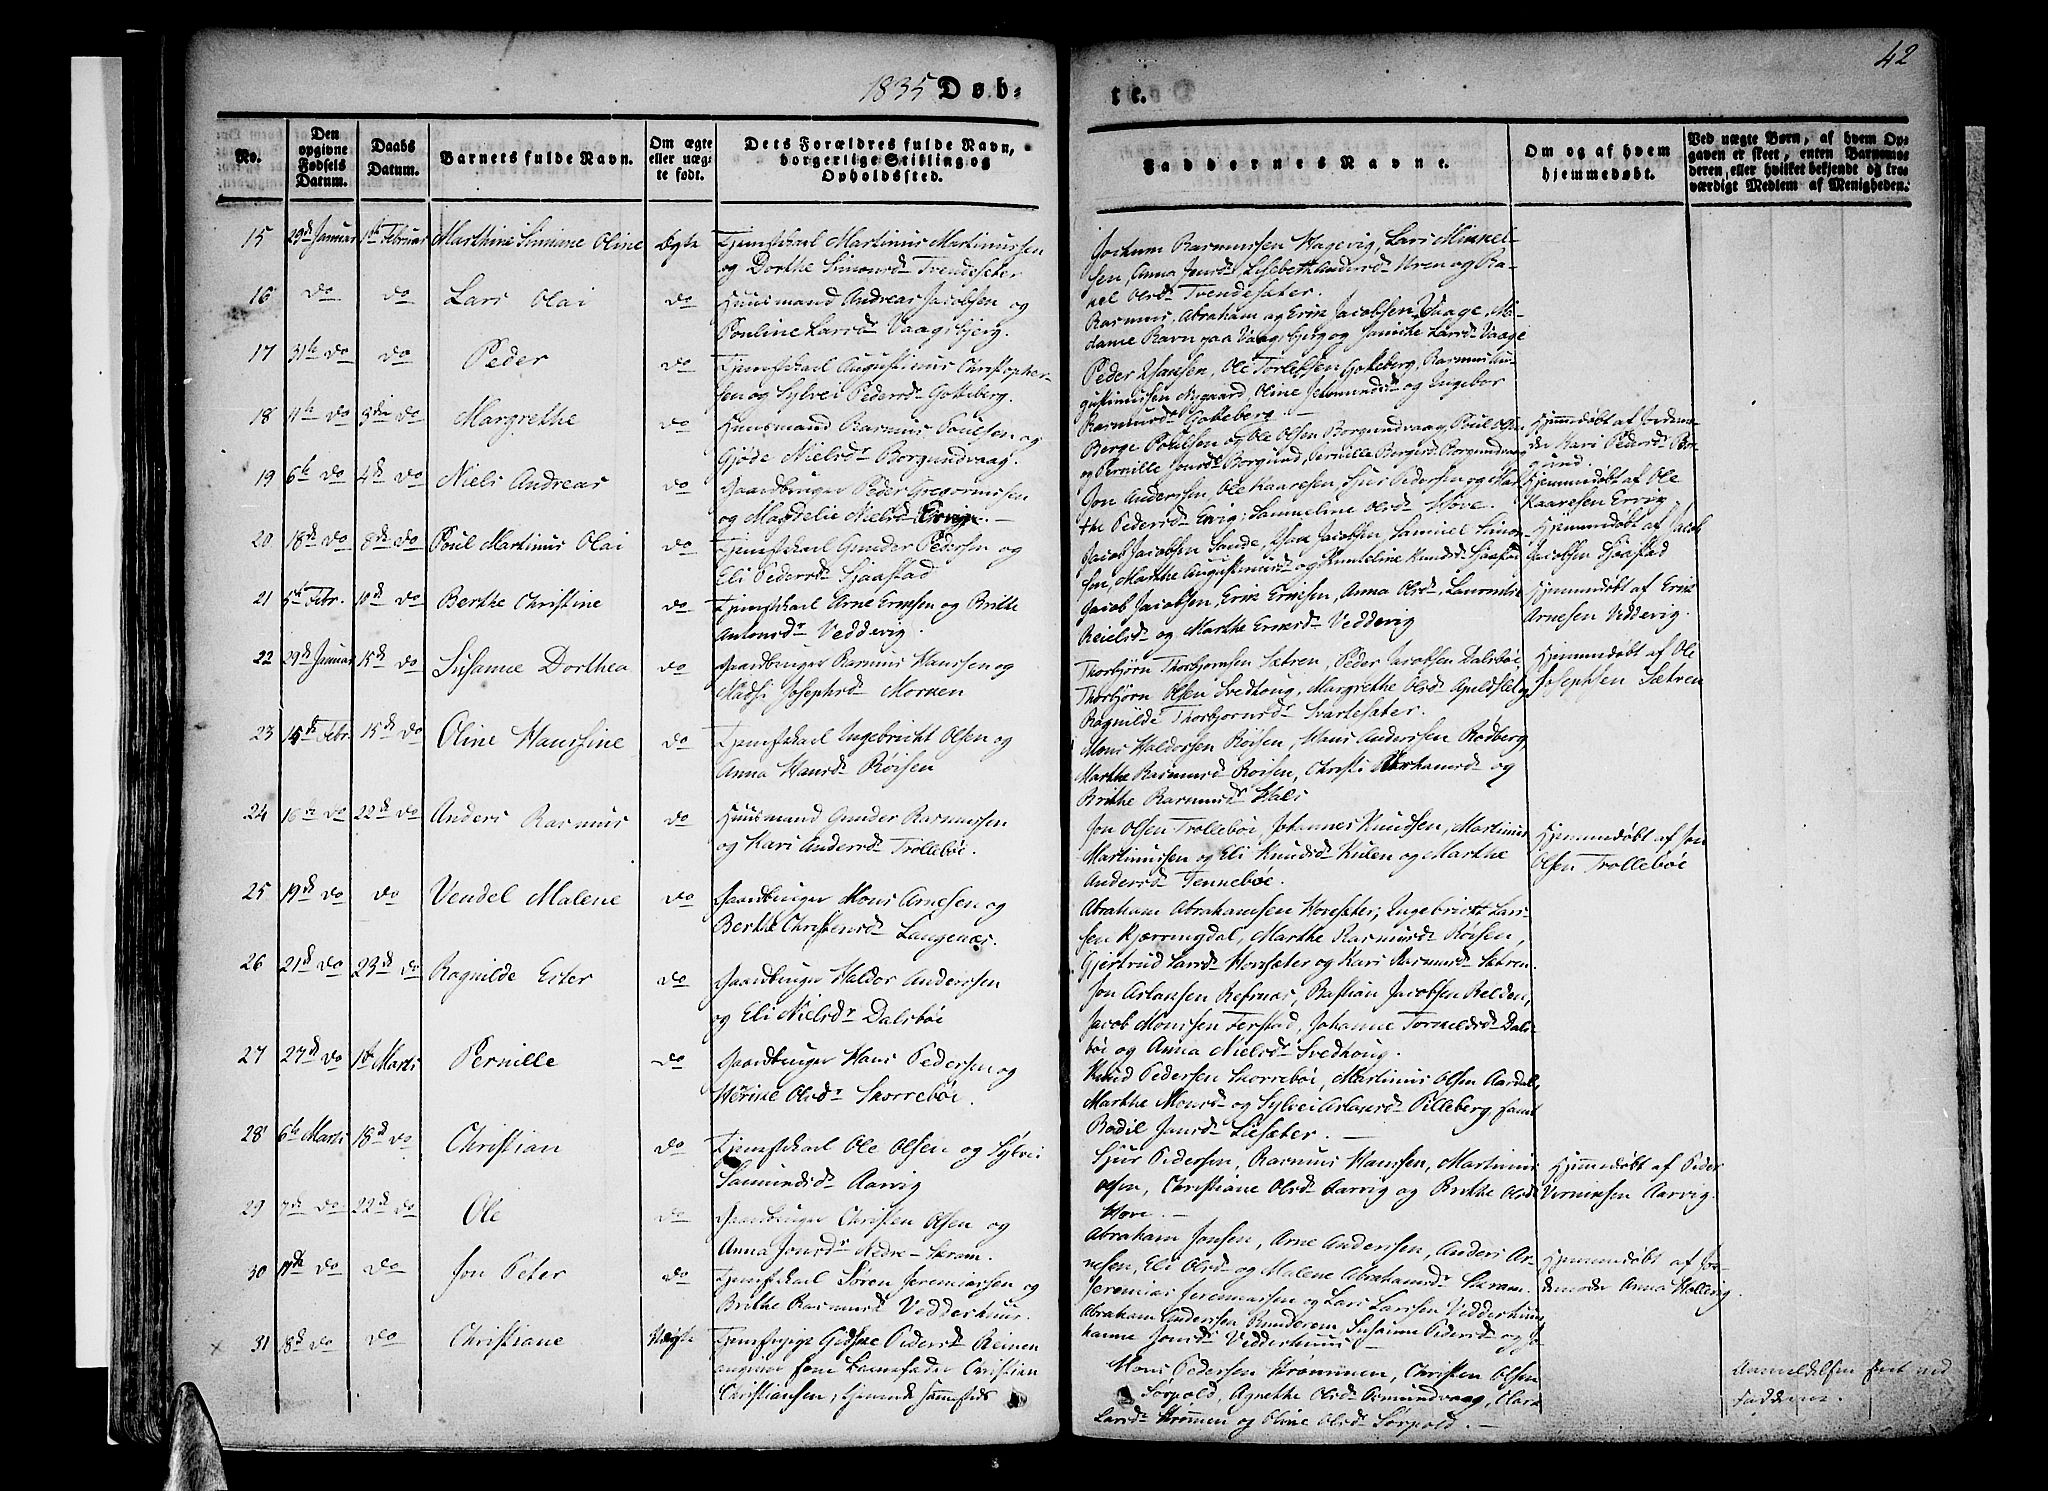 42
1835 Døb-
te.
No.
Den opgivne Fødsels Datum.
Daabs Datum.
Barnets fulde Navn.
Om ægte eller uægte født.
Dets Forældres fulde Navn, borgerlige Stilling og Opholdssted.
Faddernes Navne.
Om og af hvem hjemmedøbt.
Ved uægte Børn, af hvem Opgaven er skeet, enten Barnemoderen, eller hvilket bekjendt og troværdigt Medlem af Menigheden.
15 29de Januar 1ste Februar Marthine Simine Oline Ægte Tjenestkarl Martinus Martinussen
og Dorthe Simonsd. Trendesæter
Jochum Rasmussen Hagevig, Lars Mikkel-
sen, Anna Jonsd. Lisebeth Andersd. Uren og Ra-
kel Olsd. Trendesæter.
16 do do Lars Olai do Huusmand Andreas Jacobsen og
Pouline Larsd. Vaagsbjerg.
Rasmus, Abraham og Erik Jacobsen Vaage, Ma-
dame Ravn paa Vaagsbjerg og Larsd. Vaage
17 31te do do Peder do Tjenestkarl Augustinus Christopher-
sen og Sylvei Pedersd. Gotteberg.
Peder Hansen, Ole Torlefsen Gotteberg, Rasmus Au-
gustinussen Nygaard, Oline og Ingebor
Rasmusd. Gotteberg.
18 11te do 3die do Margrethe do Huusmand Rasmus Poulsen og
Gjøde Nielsd. Borgundvaag.
Berge Poulsen og Ole Olsen Borgundvaag, Poul Olsen
og Pernille Jonsd. Borgund, Pernille Bergesd. Borgundvaag
Hjemmedøbt af Jordemo-
der Kari Pedersd. Bor-
gund.
19 6te do 4de do Niels Andreas do Gaardbruger Peder Gregoriussen
og Magdelie Nielsd. Ervig.
Jon Anderssen, Ole Kaaresen, Sjur Pedersen og Mar-
the Pedersd. Ervig, Sammeline Olsd. Hove.
Hjemmedøbt af Ole
Kaaresen Ervig.
20 18de do 8de do Poul Martinus Olai do Tjenestkarl Gunder Pedersen og
Eli Pedersd. Sjaastad
Jacob Jacobsen Sande, Isak Jacobsen, Samuel Simon-
sen, Marthe Augustinusd. og Knudeline Knudsd. Sjaastad
Hjemmedøbt af Jacob
Jacobsen Sjaastad
21 5te Febr. 10de do Berthe Christine do Tjenestkarl Arne Eriksen og Brithe
Antonsd. Veddevig.
Jacob Jacobsen, Erik Eriksen, Anna Olsd. Laurentse
Reielsd. og Marthe Eriksd. Veddevig
Hjemmedøbt af Erik
Arnesen Veddevig.
22 29de Januar 15de do Susanne Dorthea do Gaardbruger Rasmus Hanssen og
Madsi Josephsd. Morken
Thorbjørn Thorbjørnsen Sætren, Peder Jacobsen Dalsbøe,
Thorbjørn Olsen Svedhoug, Margrethe Olsd. Apeldset og
Ragnilde Thorbjørnsd. Svartesæter.
Hjemmedøbt af Ole
Josephsen Sætren
23 15de Febr. 15de do Oline Hanssine do Tjenestkarl Ingebricht Olsen og
Anna Hansd. Røisen
Mons Haldorsen Røisen, Hans Anderssen Rødberg
Marthe Rasmusd. Røisen, Christi Abrahamsd. og
Brithe Rasmusd. Hals
24 16de do 22de do Anders Rasmus do Huusmand Gunder Rasmussen
og Kari Andersd. Trollebøe.
Jon Olsen Trollebøe, Johannes Knudsen, Martinus
Martinussen og Eli Knudsd. Kulen og Marthe
Andersd. Tennebøe.
Hjemmedøbt af Jon
Olsen Trollebøe
25 19de do do Vendel Malene do Gaardbruger Mons Arnesen og
Berthe Christensd. Langenæs.
Abraham Abrahamsen Hovesæter, Ingebricht Lars-
sen Kjærringdal, Marthe Rasmusd. Røisen,
Gjertrud Larsd. Hovesæter og Kari Rasmusd. Sætren.
26 21de do 23de do Ragnilde Ester do Gaardbruger Haldor Anderssen
og Eli Nielsd. Dalsbøe
Jon Aslaksen Refsnæs, Bastian Jacobsen Belden,
Jacob Monssen Ferstad, Johanne Torkeldsd. Dals-
bøe og Anna Nielsd. Svedhoug.
27 27de do 1ste Marts Pernille do Gaardbruger Hans Pedersen og
Verine Olsd. Skorrebøe.
Knud Pedersen Skorrebøe, Martinus Olsen Aardal,
Marthe Monsd. og Sylvei Aslaksd. Pilleberg samt
Bodil Jansd. Liesæter.
28 6te Marts 18de do Christian do Tjenestkarl Ole Olsen og Sylvei
Samundsd. Aarvig
Sjur Pedersen, Rasmus Hanssen, Martinus
Olsen, Christiane Olsd. Aarvig og Brithe Olsd.
Hove.
Hjemmedøbt af Peder
Verniksen Aarvig.
29 7de do 22de do Ole do Gaardbruger Christen Olsen og
Anna Jonsd. Nedre-Skram.
Abraham Jonsen, Arne Anderssen, Anders Ar-
nesen, Eli Olsd. og Malene Abrahamsd. Skram.
30 11te do do Jon Peter do Tjenestkarl Søren Jeremiassen og
Brithe Rasmusd. Vedderhuus.
Jeremias Jeremiassen og Lars Larssen Vedderhuus
Abraham Anderssen Runderem, Susanne Pedersd. og Jo-
hanne Jonsd. Vedderhuus
Hjemmedøbt af Jor-
demoder Anna Hollevig.
× 31 18de do do Christiane Uægte Tjenestpige Gidske Pedersd. Reinen
angiver som Barnefader Christian
Christiansen, tjenende sammesteds
Mons Pedersen Strømmen, Christen Olsen
Sørpold, Agnethe Olsd. Osmundvaag, Clara
Larsd. Strømmen og Oline Olsd. Sørpold.
Anmeldelsen skeet ved
Fadderne.